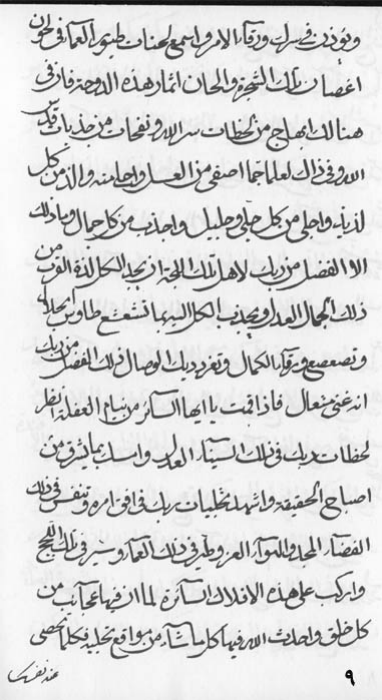 وتوذن في سرك ورقآء الامر واسمع لحنات طيور العمآء في خوان
اغصان تلك الشجرة والحان اثمار هذه الدوحة فان في
هنالك ابهاج من لحظات سر الله ونفحات من جذبات قدس
الله وفي ذلك لعلماً جمّا اصفى من العسل واحلى منه والذ من كل
لذيذ واجلى من كل جلي وجليل واجذب من كل جمال وما ذلك
الا الفضل من ربك لاهل تلك اللجة اذ يجد الكل لذة القرب من
ذلك الجمال العدل ويجذب الكل اليه بما تشعشع طاوس الجلال
وتصعصع ورقآء الكمال وتغرد ديك الوصال ذلك الفضل من ربك
انه غني متعال فاذا قمت يا ايها السآئر من نيام الغفلة انظر
لحظات ربك في تلك السينآء العدل و بما تشرق من
اصباح الحقيقة واشهد تجليات ربك في افق امره وتنفس في ذلك
الفضآء المجد والهوآء العز وطير في ذلك العمآء وسير في تلك اللجج
واركب على هذه الافلاك السآئرة لما ان فيها عجآئب من
كل خلق واحدث الله فيها كل ما شآء من بواقع تجليه فكلما تحصى
عند نفسك
٩